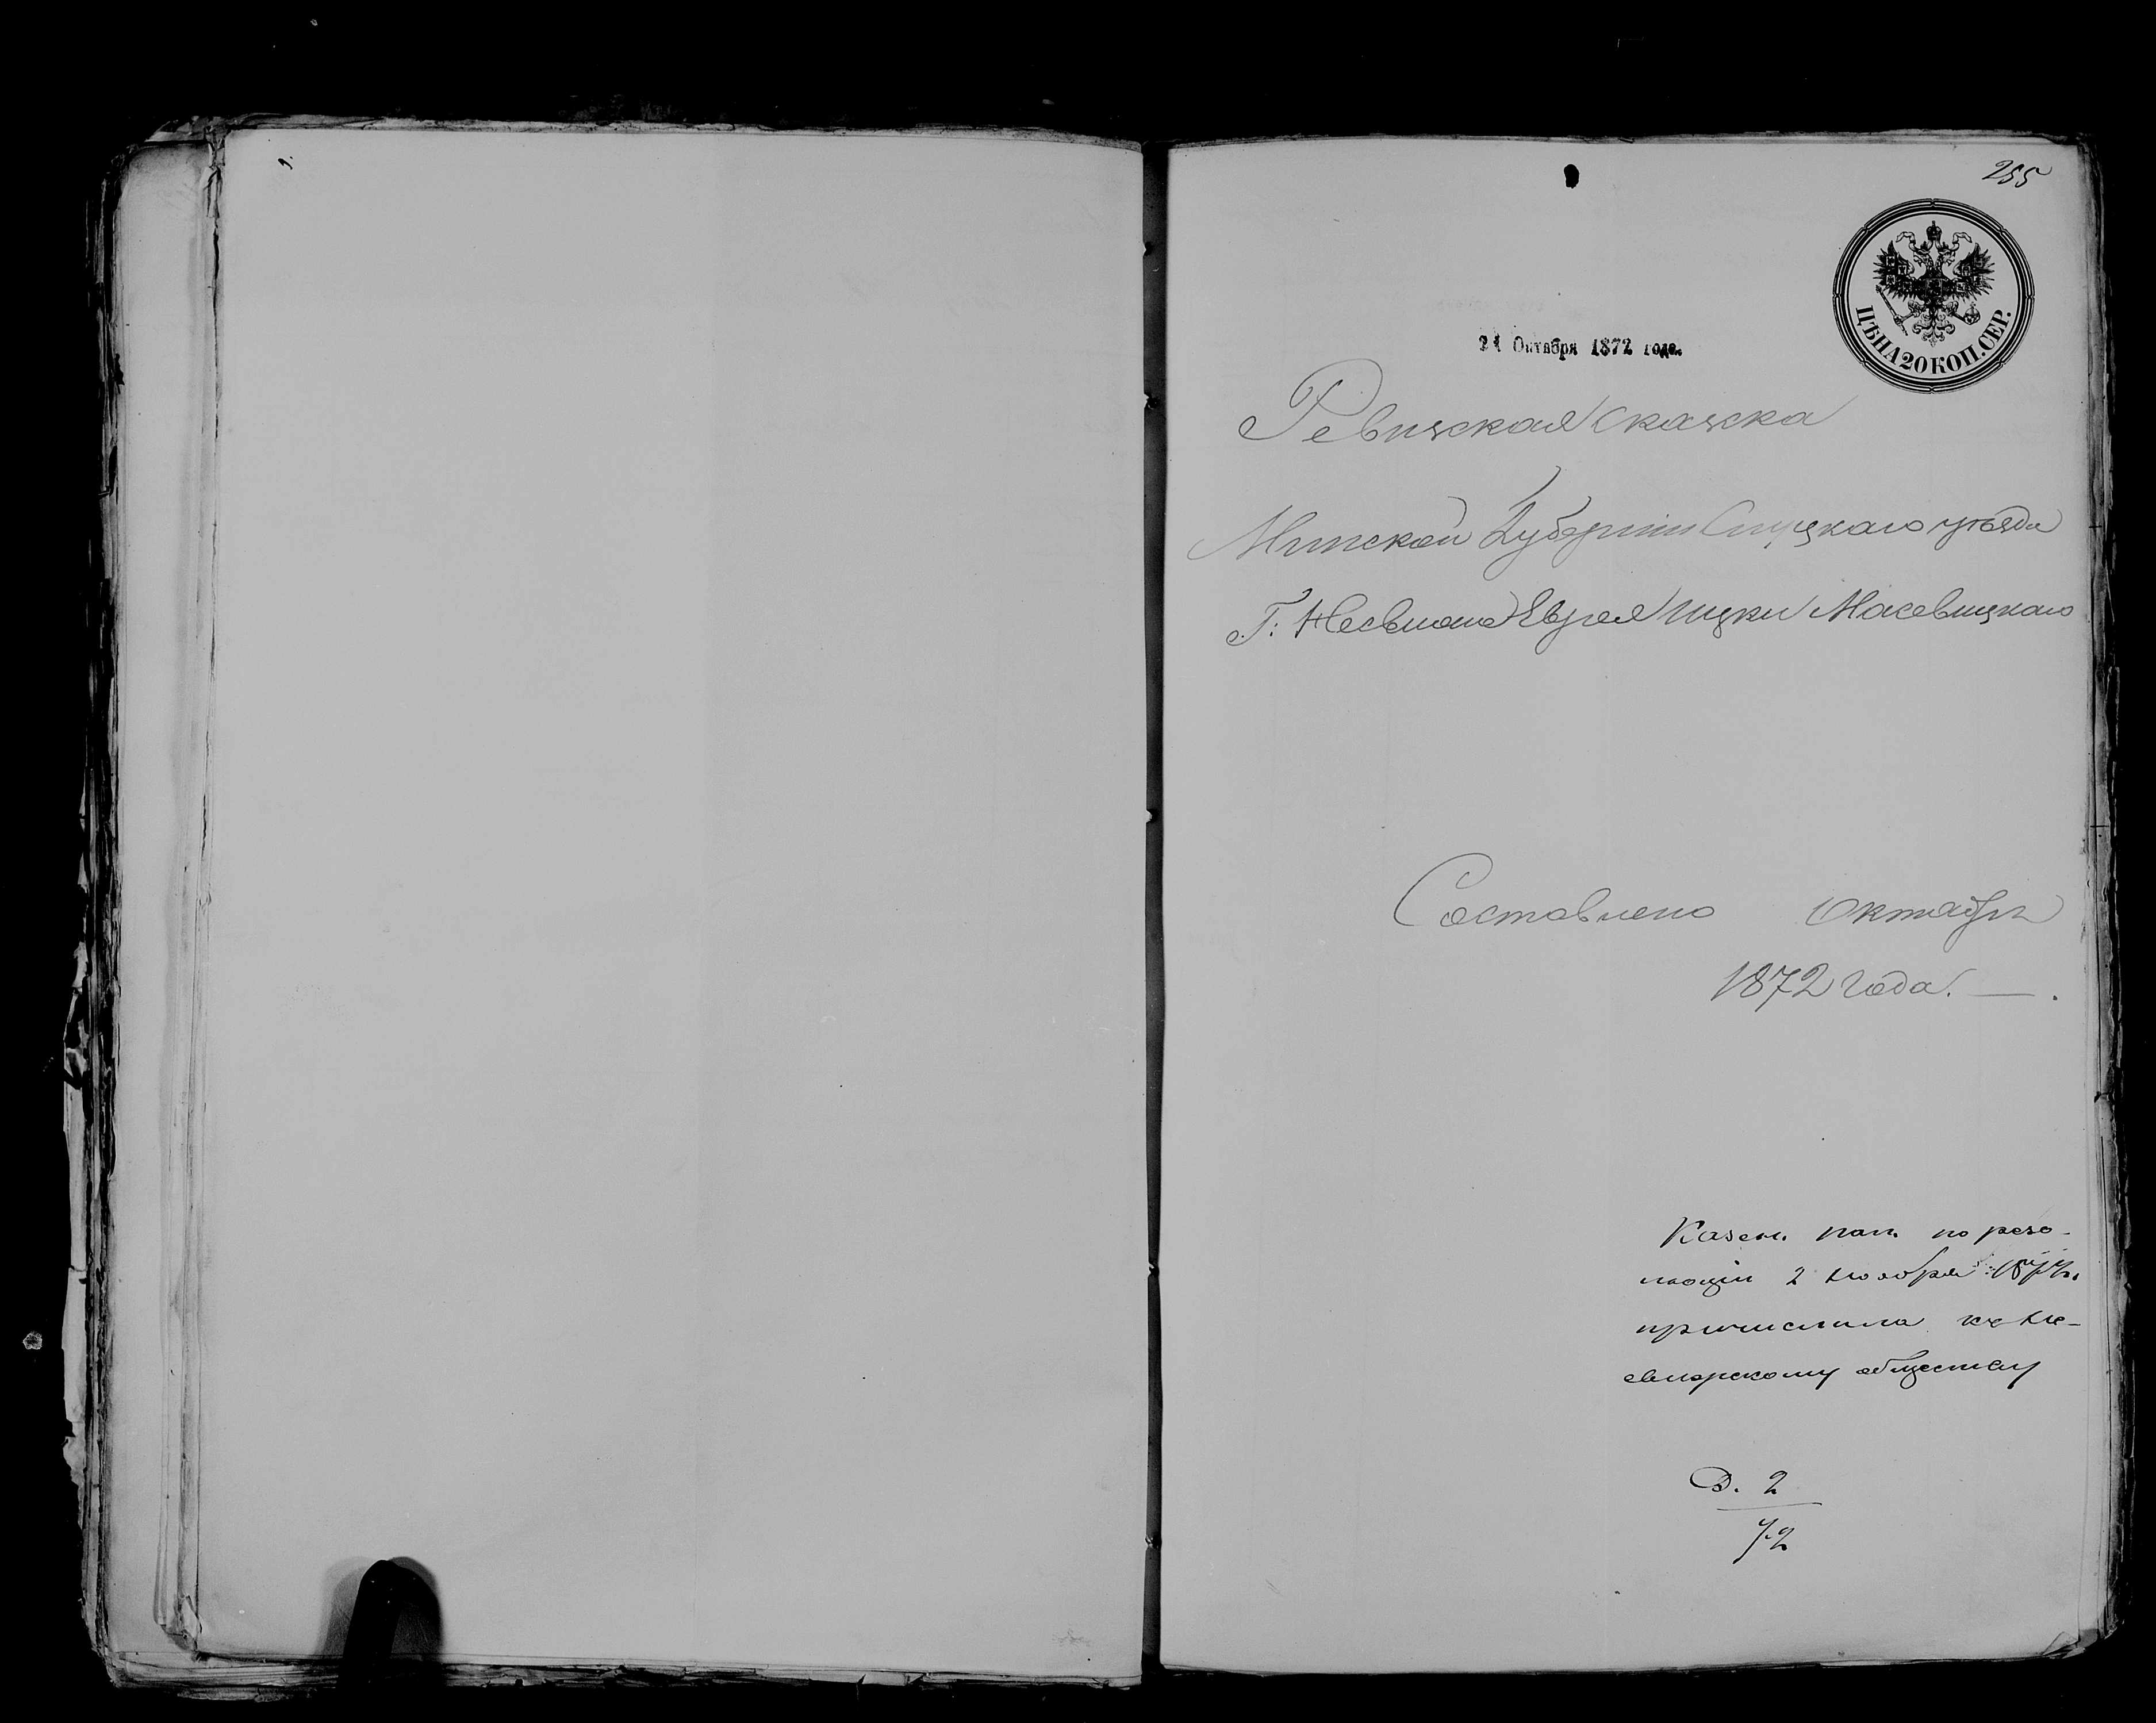 255
ЦѢНА 20 КОП. СЕР.
21 Октября 1872 года.
Ревизская сказка
Минской Губернии Слуцкаго уѣзда
Г: Несвижа Еврея Ицки Масевицкаго
Составлено Октября
1872 года. — .
Казен. пал. по резо-
люціи 2 ноября 1872 г.
причислила къ Не-
свижскому обществу
2